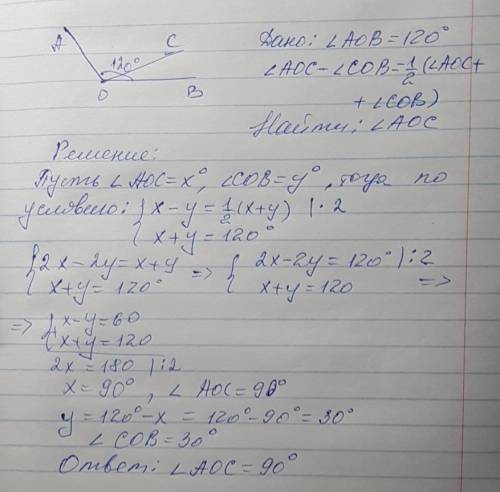 A
C
120°
O
B
Дано: ∠AOB = 120°
∠AOC - ∠COB = 1/2 (∠AOC +
+ ∠COB)
Найти: ∠AOC
Решение:
Пусть ∠AOC = x°, ∠COB = y°, тогда по
условию: { x - y = 1/2 (x+y) | · 2
x + y = 120°
{ 2x - 2y = x + y => { 2x - 2y = 120° | : 2
x + y = 120° x + y = 120 =>
=> { x - y = 60
x + y = 120
2x = 180 | : 2
x = 90°, ∠AOC = 90°
y = 120° - x = 120° - 90° = 30°
∠COB = 30°
Ответ: ∠AOC = 90°